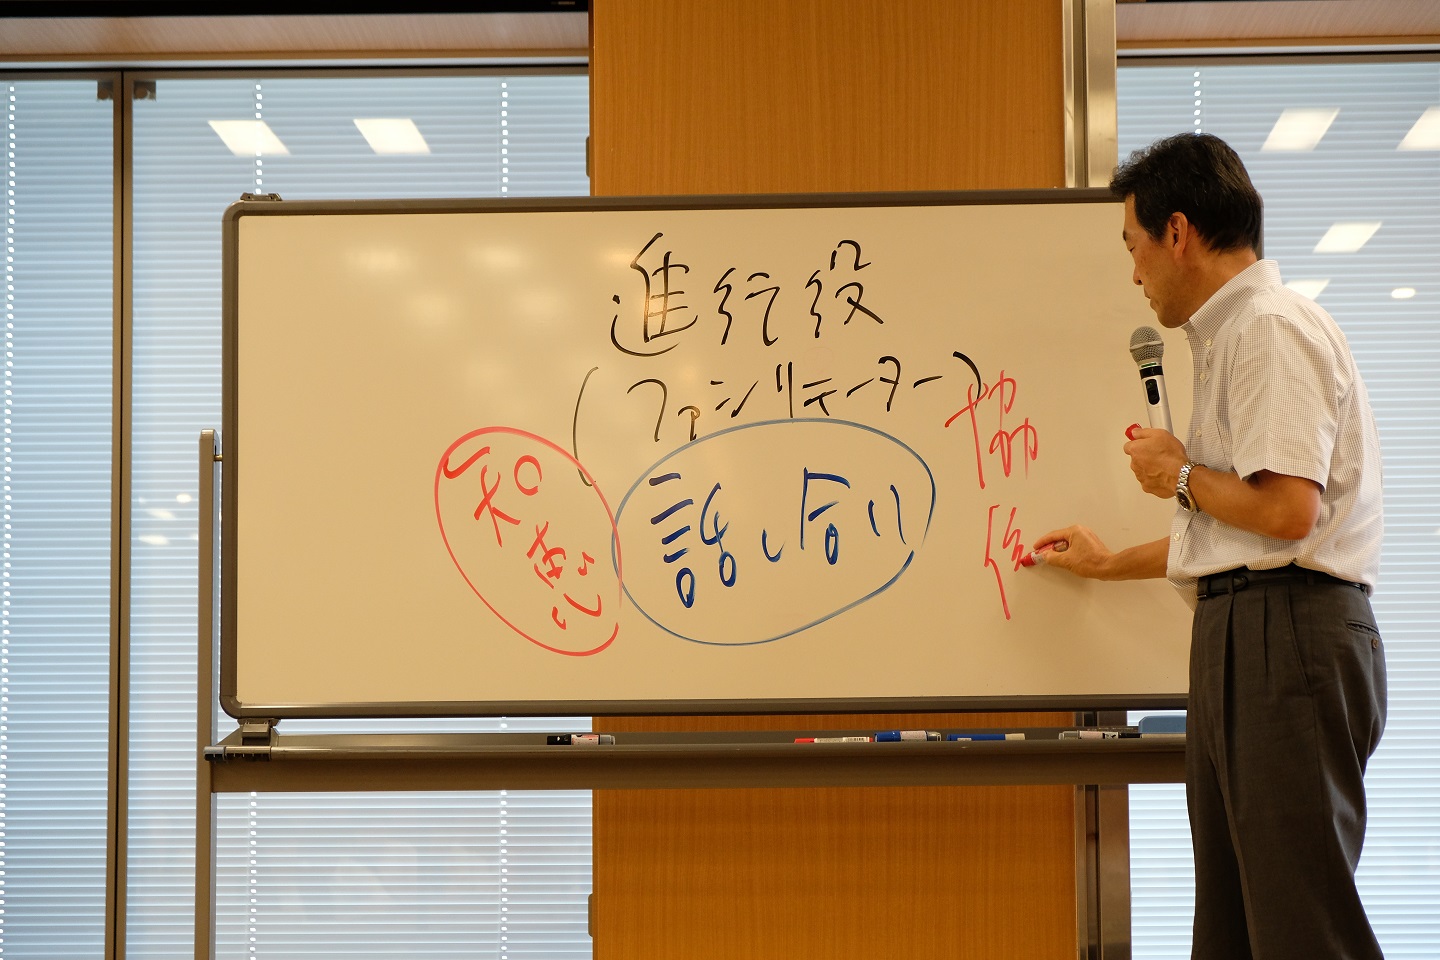 進行役
(ファシリテーター)
話し合い
協